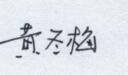 黄冬梅